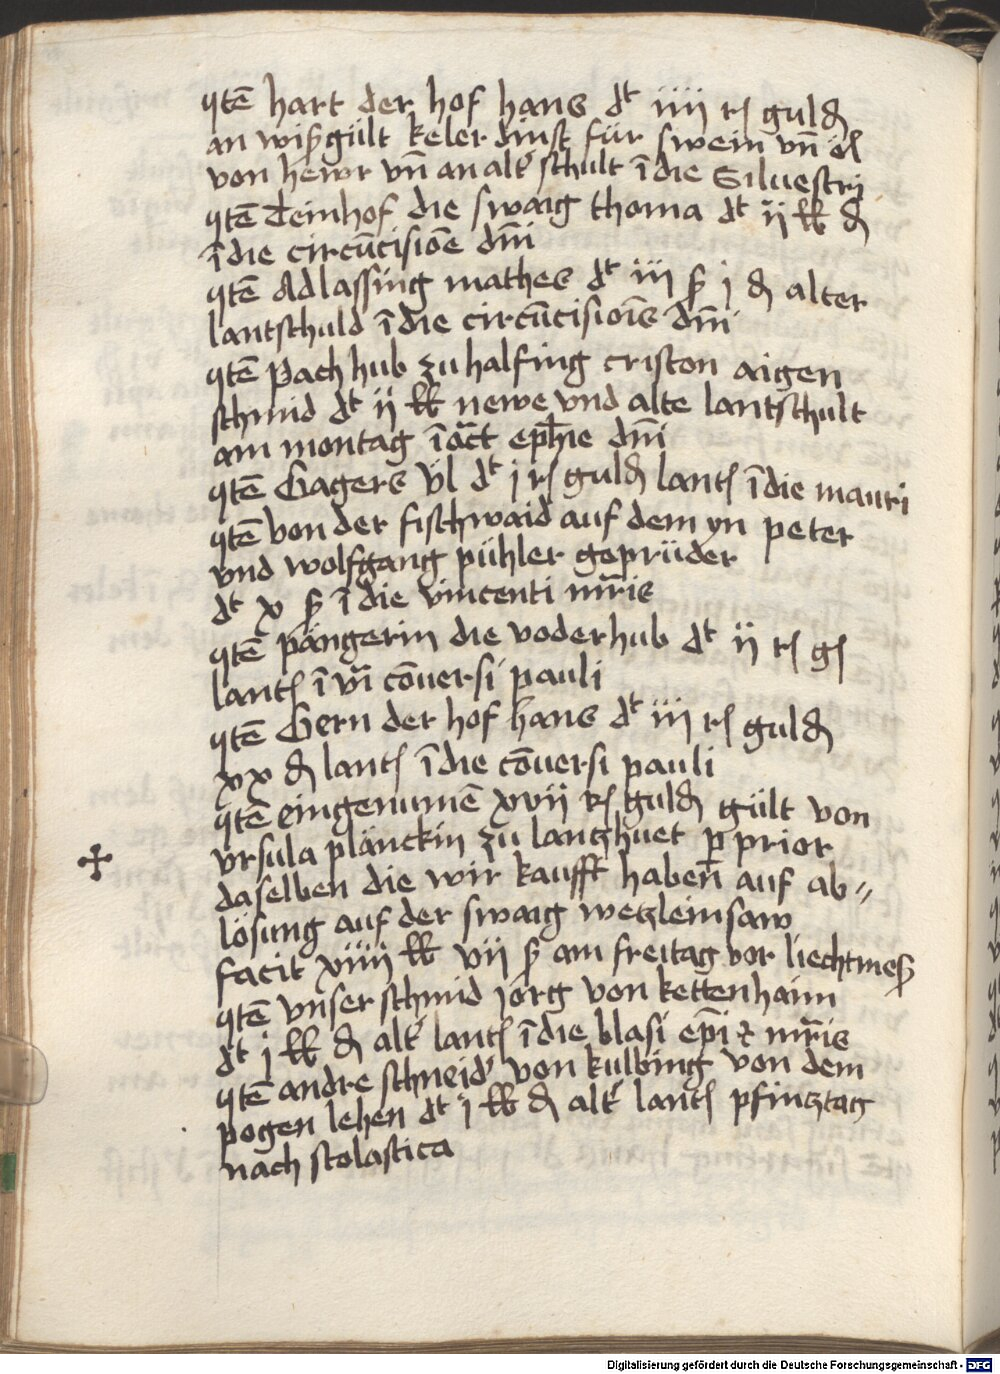 Itē hart der hof hans dt iiij rh guld
an wisgült keler dinst für swein vn̄ öl
von hewr vn̄ an alt schult ī die Siluestri
Itē Teinhof die swaig thoma dt ij lb d
ī die circūcisiōe dn̄i
Itē Adlassing mathes dt iij ß j d alter
lantschuld ī die circūcisiōis dn̄i
Itē Pach hub zu halfing criston aigen
schmid dt ij lb newe vnd alte lantschult
am montag ī oct eph̄ie dn̄i
Itē Gagers vl dt j rh guld lants ī die mauri
Itē von der fischwaid auf dem yn peter
vnd wolfgang pühler geprüder
dt x ß ī die vincenti mr̄is
Itē pängerin die voderhub dt ij rh g
lants ī vi cōuersi pauli
Itē Gern der hof hans dt iij rh guld
xx d lants ī die cōuersi pauli
Itē eingenumē xvij rh guld gült von
vrsula plänckin zu lantzhuet p prior
daselben die wir kaufft haben̄ auf ab⸗
lösung auf der swaig wetzleinsaw
facit xiiij lb vij ß am freitag vor liechtmeß
Itē vnser schmid jörg von kettenhaim
dt j lb d alt lants ī die blasi ep̄i et mr̄is
Itē andre schneid von kulbing von dem
pogen lehen dt j lb d alt lants pfintztag
nach scolastica
Digitalisierung gefördert durch die Deutsche Forschungsgemeinschaft - DFG